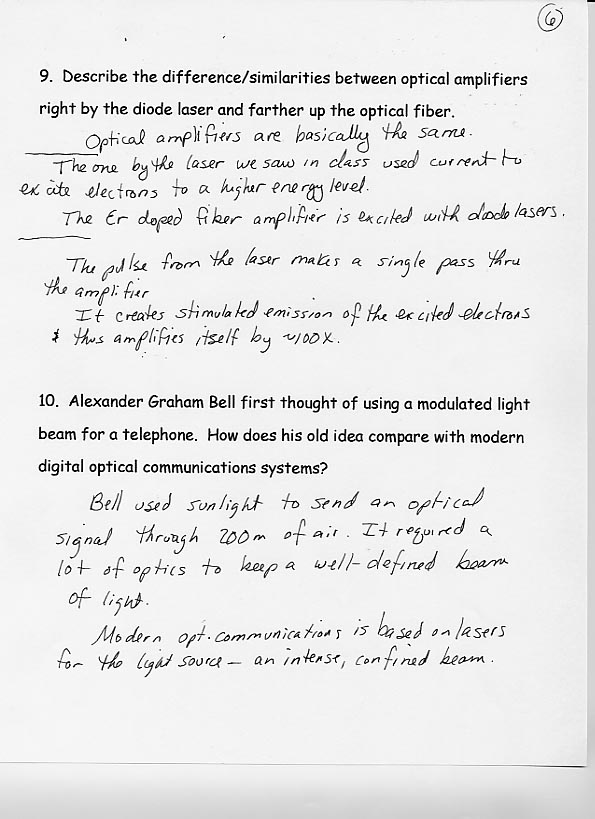 6
9. Describe the difference/similarities between optical amplifiers
right by the diode laser and farther up the optical fiber.
Optical amplifiers are basically the same.
The one by the laser we saw in class used current to
excite electrons to a higher energy level.
The Er doped fiber amplifier is excited with diode lasers.
The pulse from the laser makes a single pass thru
the amplifier
It creates stimulated emission of the excited electrons
& thus amplifies itself by ~100X.
10. Alexander Graham Bell first thought of using a modulated light
beam for a telephone. How does his old idea compare with modern
digital optical communications systems?
Bell used sunlight to send an optical
signal through 200m of air. It required a
lot of optics to keep a well-defined beam
of light.
Modern opt. communications is based on lasers
for the light source – an intense, confined beam.